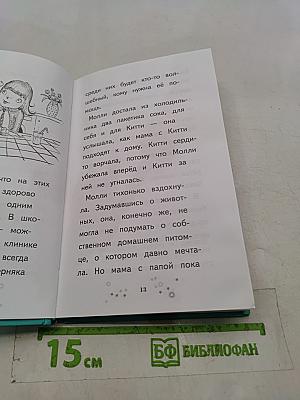 что на этих
здорово
одним
В шко-
мож-
клинике
всегда
ерняка
среди них будет кто-то вол-
шебный, кому нужна её по-
мощь.
Молли достала из холодиль-
ника два пакетика сока, для
себя и для Китти — она
услышала, как мама с Китти
подходят к дому. Китти серди-
то ворчала, потому что Молли
убежала вперёд и Китти за
ней не угналась.
Молли тихонько вздохну-
ла. Задумавшись о живот-
ных, она, конечно же, не
могла не подумать о соб-
ственном домашнем питом-
це, о котором давно мечта-
ла. Но мама с папой пока
13
15 см
БФ БИБЛИОФАН